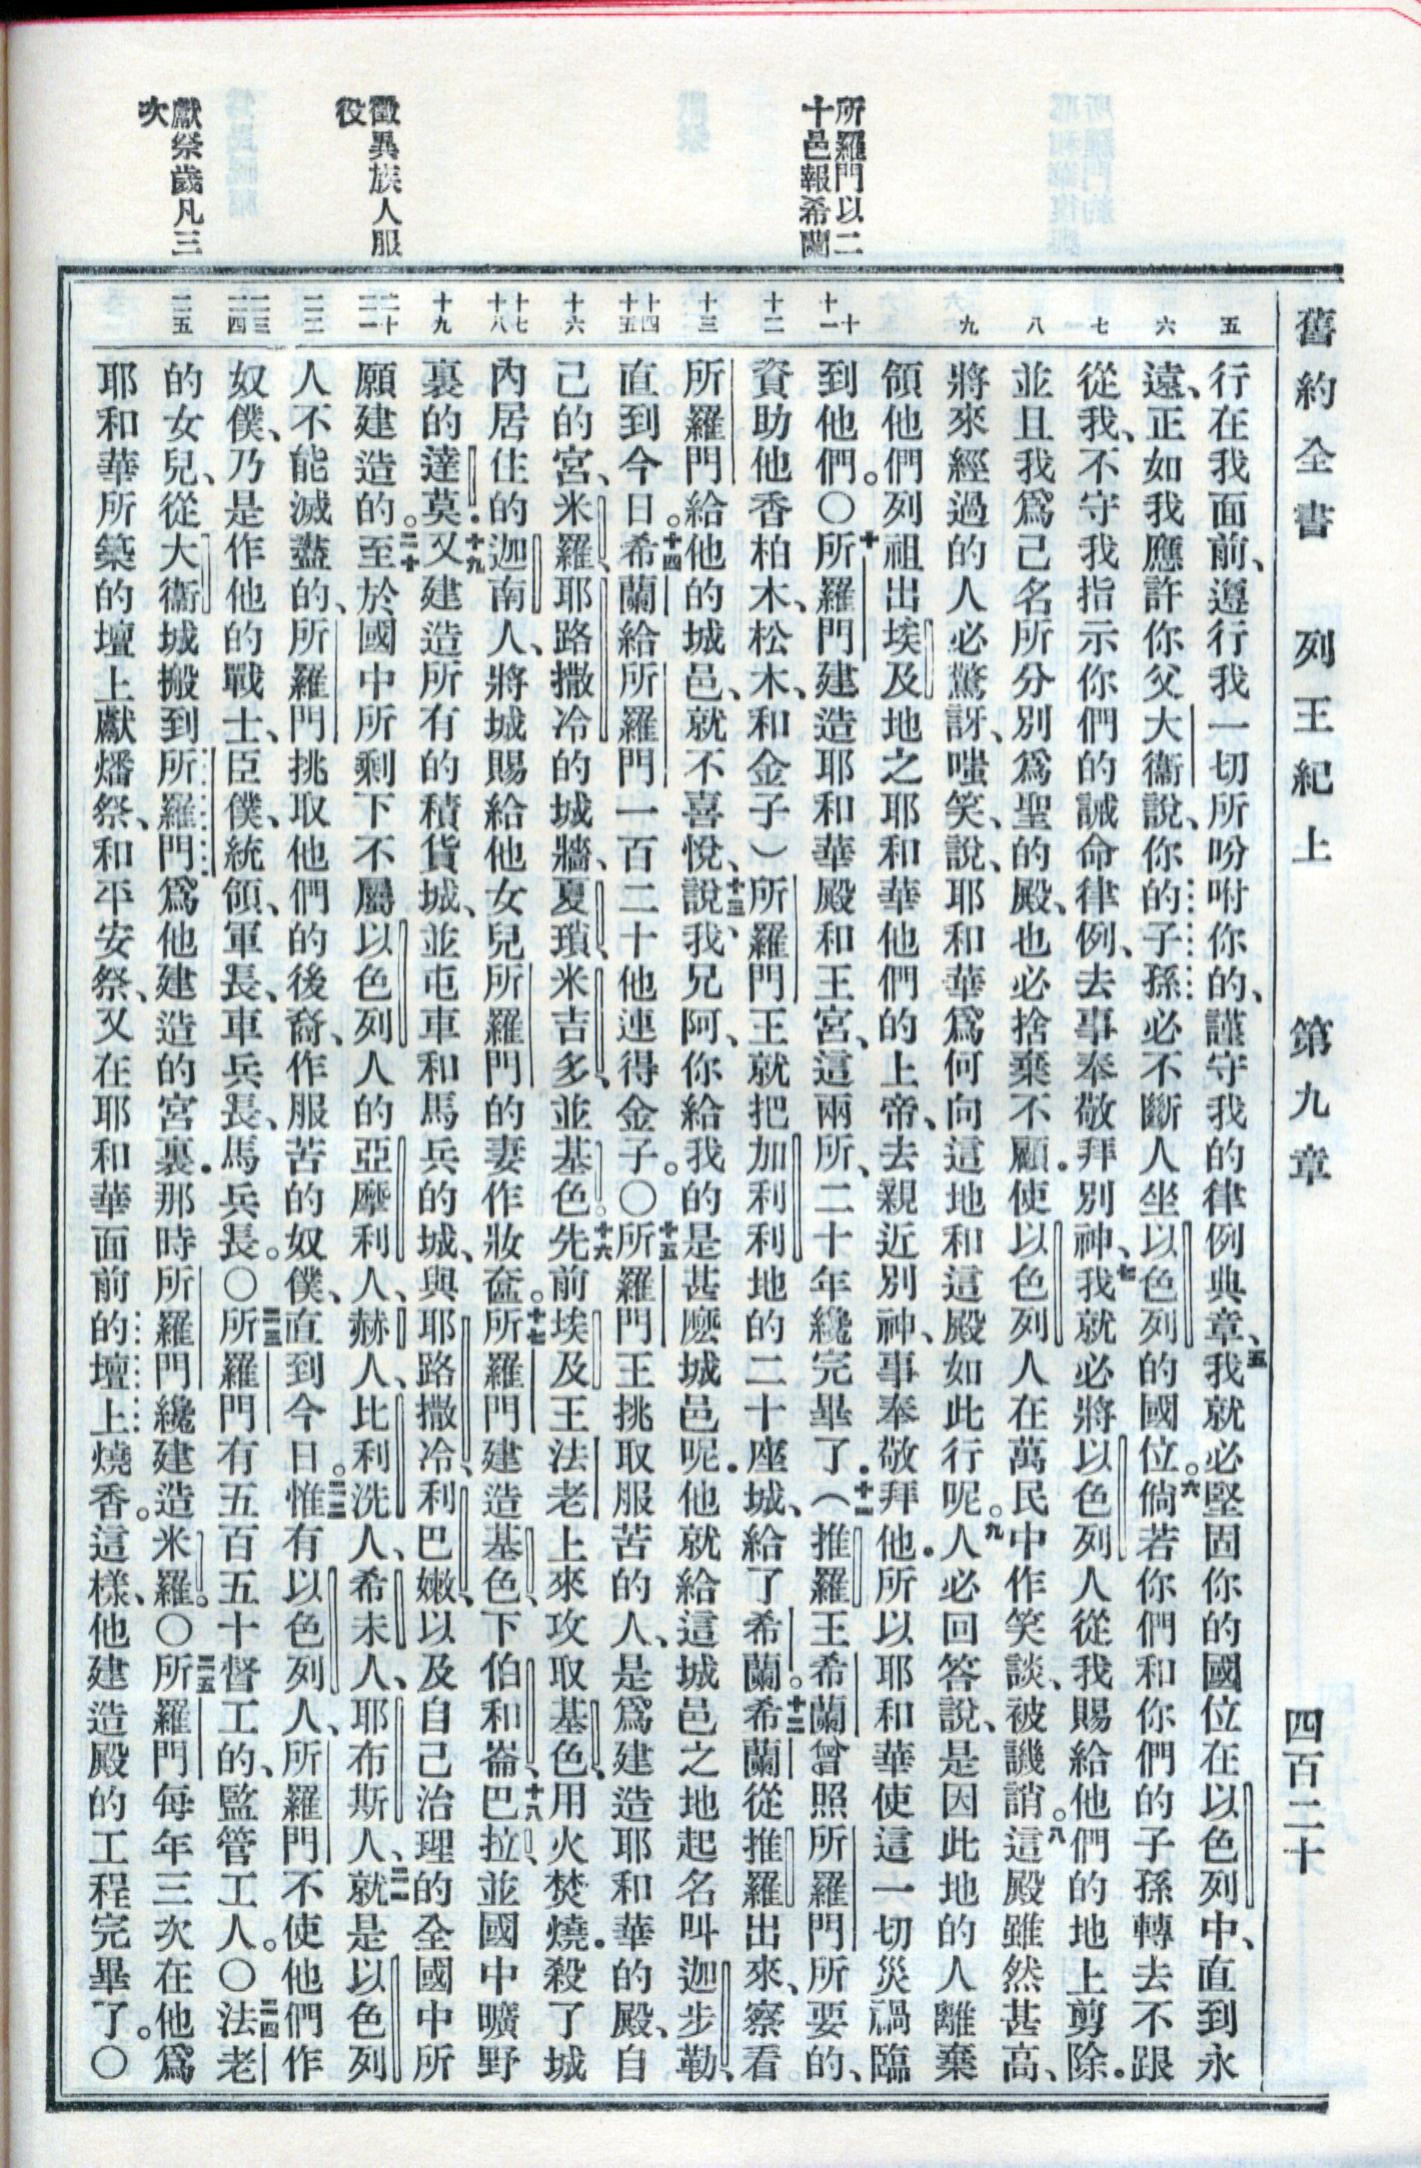 舊約全書 列王紀上 第九章 四百二十
所羅門以二
十邑報希蘭
徵異族人服
役
獻祭歲凡三
次
五
六
七
八
九
十
十一
十二
十三
十四
十五
十六
十七
十八
十九
二十
二一
二二
二三
二四
二五
行在我面前、遵行我一切所吩咐你的、謹守我的律例典章、五我就必堅固你的國位在以色列中、直到永
遠、正如我應許你父大衞說、你的子孫必不斷人坐以色列的國位。六倘若你們和你們的子孫轉去不跟
從我、不守我指示你們的誡命律例、去事奉敬拜別神、七我就必將以色列人從我賜給他們的地上剪除．
並且我爲己名所分別爲聖的殿、也必捨棄不顧．使以色列人在萬民中作笑談、被譏誚。八這殿雖然甚高、
將來經過的人必驚訝、嗤笑、說、耶和華爲何向這地和這殿如此行呢。九人必回答說、是因此地的人離棄
領他們。列祖出埃及地之耶和華他們的上帝、去親近別神、事奉敬拜他．所以耶和華使這一切災禍臨
到他們。〇十所羅門建造耶和華殿和王宮、這兩所、二十年纔完畢了．十一（推羅王希蘭曾照所羅門所要的、
資助他香柏木、松木、和金子）所羅門王就把加利利地的二十座城、給了希蘭。十二希蘭從推羅出來、察看
所羅門給他的城邑、就不喜悅、十三說、我兄阿、你給我的是甚麽城邑呢．他就給這城邑之地起名叫迦步勒、
直到今日。十四希蘭給所羅門一百二十他連得金子。〇十五所羅門王挑取服苦的人、是爲建造耶和華的殿、自
己的宮、米羅、耶路撒冷的城牆、夏瑣、米吉多、並基色。十六先前埃及王法老上來攻取基色、用火焚燒．殺了城
內居住的迦南人、將城賜給他女兒所羅門的妻作妝奩。十七所羅門建造基色、下伯和崙、十八巴拉、並國中曠野
裏的達莫．十九又建造所有的積貨城、並屯車和馬兵的城、與耶路撒冷、利巴嫩、以及自己治理的全國中所
願建造的。二十至於國中所剩下不屬以色列人的亞摩利人、赫人、比利洗人、希未人、耶布斯人、二一就是以色列
人不能滅盡的、所羅門挑取他們的後裔、作服苦的奴僕、直到今日。二二惟有以色列人、所羅門不使他們作
奴僕、乃是作他的戰士、臣僕、統領、軍長、車兵長、馬兵長。〇二三所羅門有五百五十督工的、監管工人。〇二四法老
的女兒、從大衞城搬到所羅門爲他建造的宮裏．那時所羅門纔建造米羅。〇二五所羅門每年三次在他爲
耶和華所築的壇上獻燔祭、和平安祭、又在耶和華面前的壇上燒香。這樣、他建造殿的工程完畢了。〇